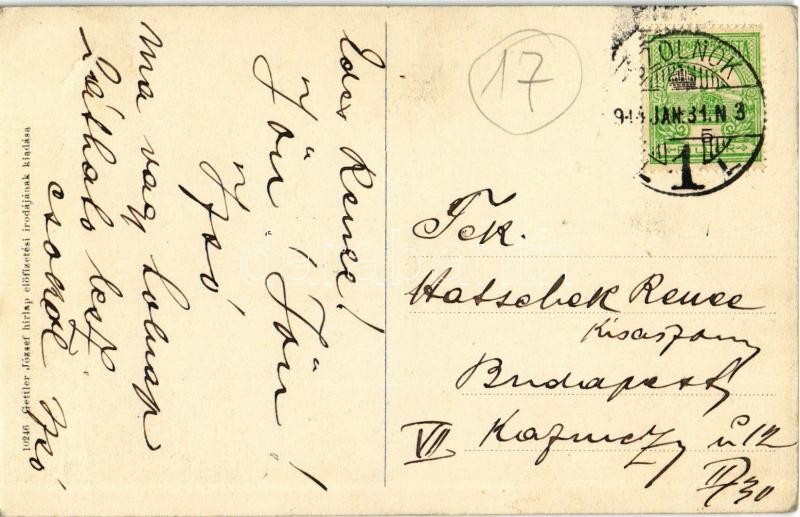 Edes Renee!
Jön! Jön!
Izsó
Ma vagy holnap
látható lesz
csókol Izsó
10246 Gettler József hirlap előfizetési irodájának kiadása
17
SZOLNOK
JAN. 31. N 3
5
1
Tek.
Hatschek Renee
kisaszony
Budapest
VII Kazinczy u 12
II/30
darabanth